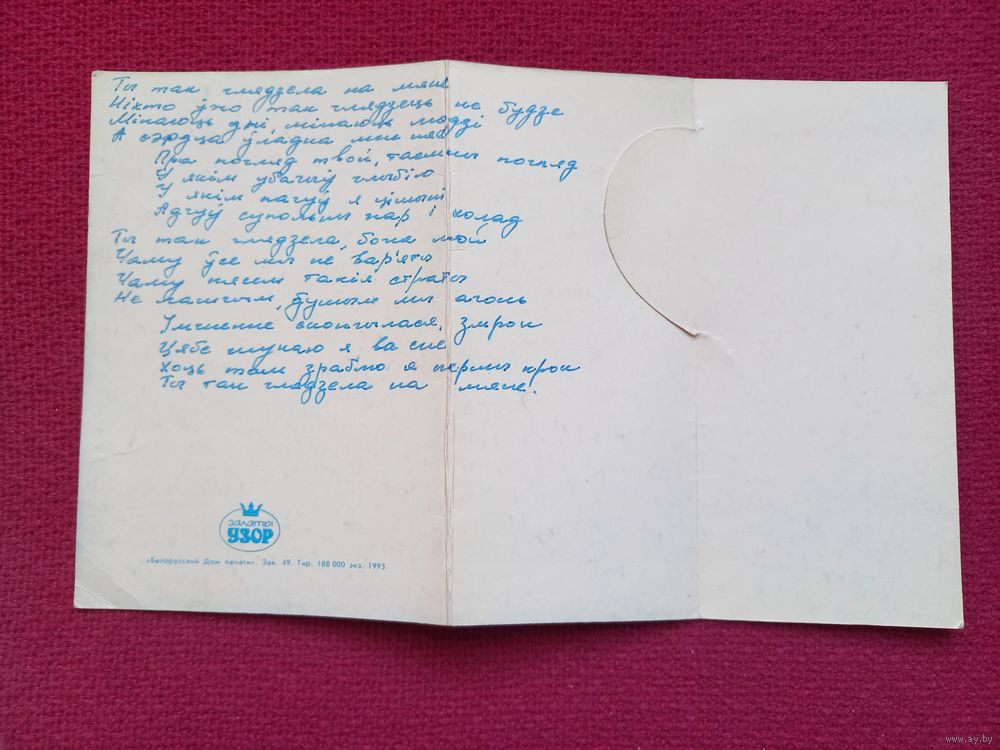 Ты так глядзела на мяне
Ніхто ўжо так глядзець не будзе
Мінаюць дні, мінаюць людзі
А сэрца ўладна мне
Пра погляд твой, таемны погляд
У якім убачыў глыбію
У якім пачуў я цішыню
Адчуў супольны жар і холад
Ты так глядзела, божа мой
Чаму ўсе мы не вар'яты
Чаму нясем такія страты
Не палічым, тушым мы агонь
Імгненне скончылася, змрок
Цябе шукаю я ва сне
Хоць там зраблю я першы крок
Ты так глядзела на мяне.
залаты
УЗОР
«Белорусский Дом печати». Зак. 49. Тир. 188 000 экз. 1993.
www.ay.by